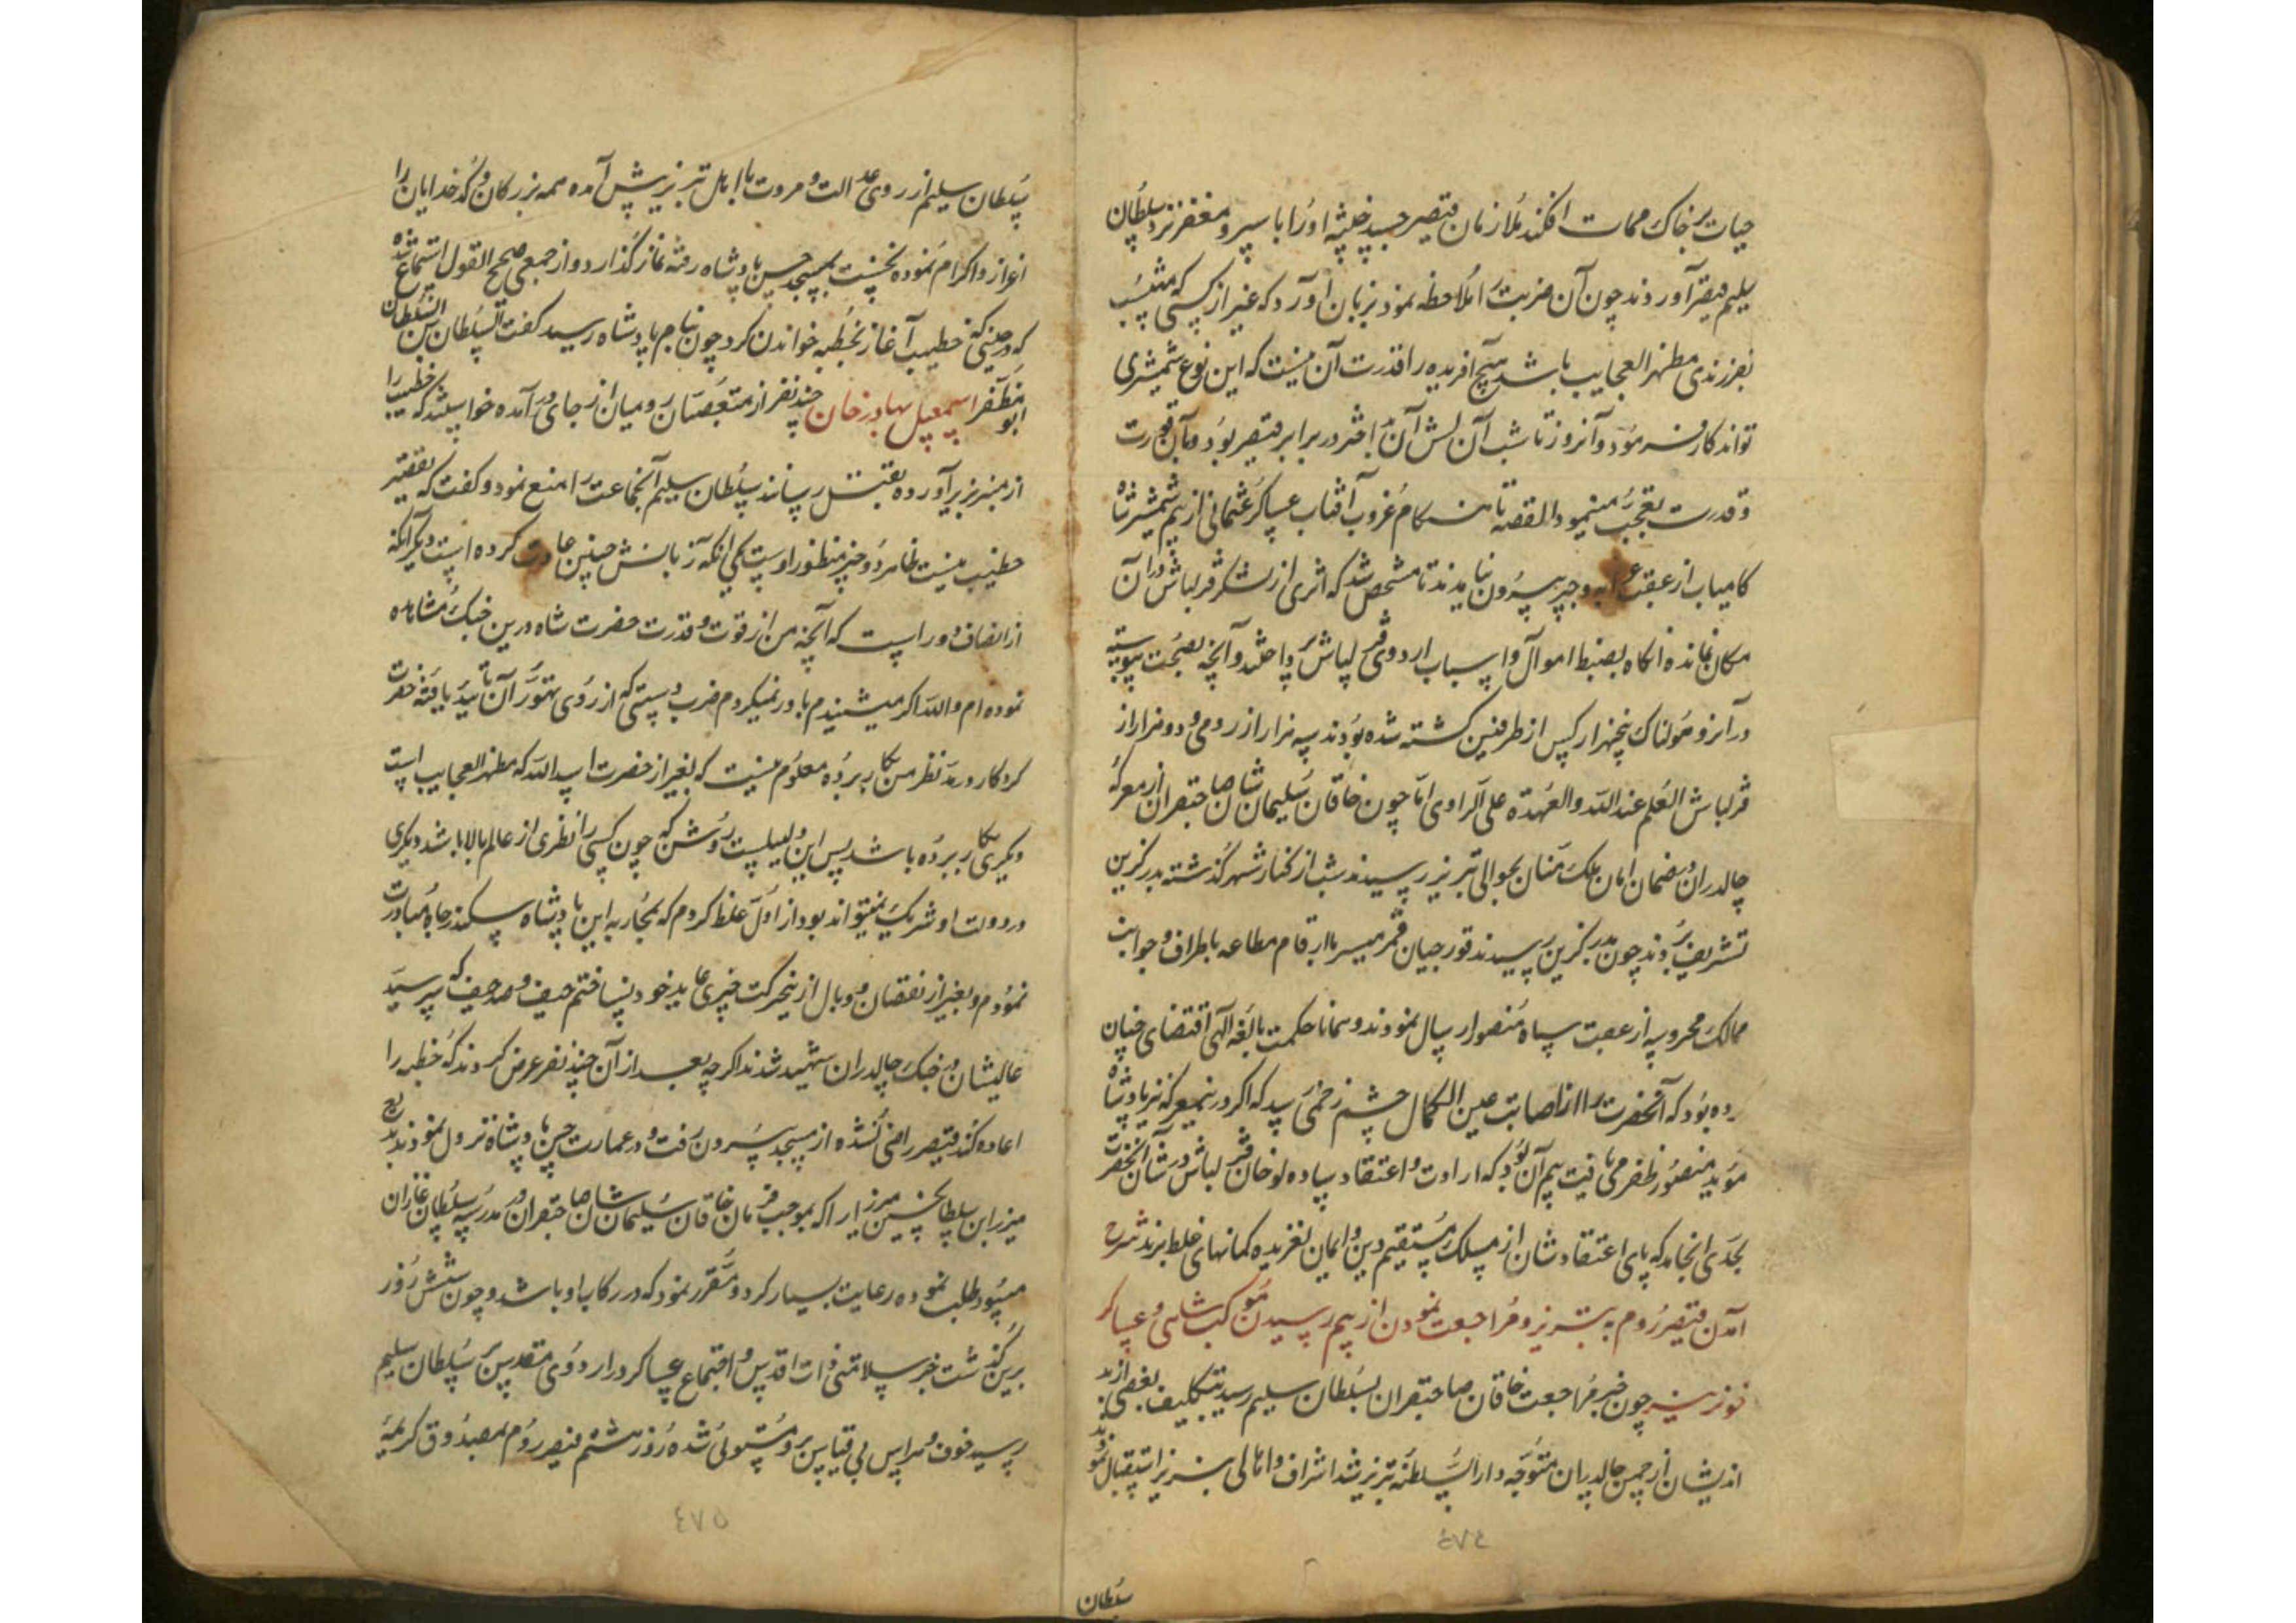 حیات بر خاک ممات افکند ملازمان قیصر جسد خلیثه او را با سپر و مغفر نزد سلطان
سلیم قیصر آوردند چون آن ضربت را ملاحظه نمود بزبان آورد که غیر از کسی که منتسب
بفرزندی مظهر العجایب باشد هیچ آفریده را قدرت آن نیست که این نوع شمشیری
تواند کار فرمود و آنروز تا شب آن لش آن در برابر قیصر بود و بآن قدرت
و قدرت تعجب مینمود القصه تا هنکام غروب آفتاب عساکر عثمانی از بیم شمشیر شاه
کامیاب از عقب عرابه و چپر بیرون نیامدند تا مشخص شد که اثری از لشکر قزلباش در آن
مکان نمانده آنکاه بضبط اموال و اسباب اردوی قزلباش پرداختند و آنچه بصحت پیوسته
در آنروز هولناک پنجهزار کس از طرفین کشته شده بودند سه هزار از رومی و دو هزار از
قزلباش العلم عند الله والعهدة علی الراوی اما چون خاقان سلیمان شان صاحبقران از معرکه
چالدران و بضمان امان ملک منان بحوالی تبریز رسیدند شب از کنار شهر گذشته بدرکزین
تشریف بردند چون بدرکزین رسیدند قورچیان قمر مسیر با ارقام مطاعه باطراف و جوانب
ممالک محروسه از عقب سپاه منصور ارسال نمودند و همانا حکمت بالغه الهی اقتضای چنان
رده بود که آنحضرت را از اصابت عین الکمال چشم زخمی رسد که اکر در نمعرکه نیز پادشاه
مؤید منصور ظفر می یافت بیم آن بود که ارادت و اعتقاد ساده لوحان قزلباش در شان آنحضرت
بحدی انجامد که پای اعتقادشان از مسلک مستقیم دین و ایمان لغزیده کمانهای غلط برند شرح
آمدن قیصر روم به تبریز و مراجعت نمودن از بیم رسیدن موکب شاهی و عساکر
خونریز چون خبر مراجعت خاقان صاحبقران بسلطان سلیم رسید بتکلیف بعضی از بد
اندیشان از چمن چالدران متوجه دار السلطنه تبریز شد اشراف و اهالی تبریز استقبال نمودند
۴۷۴
سلطان
سلطان سلیم از روی عدالت و مروت با اهل تبریز پیش آمده همه بزرکان و کدخدایان را
اعزاز و اکرام نموده نخست بمسجد حسن پادشاه رفته نماز گذارد و از جمعی صحیح القول استماع شده
که در حینی که خطیب آغاز بخطبه خواندن کرد چون بنام پادشاه رسید کفت السلطان بن السلطان
ابو المظفر اسمعیل بهادر خان چند نفر از متعصبان رومیان از جای در آمده خواستند که خطیب را
از منبر بزیر آورده بقتل رسانند سلطان سلیم آنجماعت را منع نمود و کفت که تقصیر
خطیب نیست ظاهرا دو چیز منظور اوست یکی آنکه زبانش چنین عادت کرده است دیکر آنکه
از انصاف دور است که آنچه من از قوت و قدرت حضرت شاه درین جنک مشاهده
نموده ام والله اکر میشنیدم باور نمیکردم ضرب دستی که از روی تهور آن تایید یافته حضرت
کردکار در مد نظر من بکار برده معلوم نیست که بغیر از حضرت اسد الله که مظهر العجایب است
دیکری بکار برده باشد پس این دلیلیست روشن که چون کسی را نظری از عالم بالا باشد دیکری
در دولت او شریک نمیتواند بود از اول غلط کردم که بمحاربه این پادشاه سکندر جاه مبادرت
نمودم و بغیر از نقصان و وبال ازینحرکت چیزی عاید خود نساختم حیف و صد حیف که سر سید
عالیشان در جنک چالدران شهید شدند اکرچه بعد از آن چند نفر عرض کردند که خطبه را
اعاده کند قیصر راضی نشده از مسجد بیرون رفت و در عمارت حسن پادشاه نزول نمودند بدیع
میرزا بن سلطانحسین میرزا را که بموجب فرمان خاقان سلیمان شان صاحبقران در مدرسه سلطان غازان
میبود طلب نموده رعایت بسیار کرد و مقرر نمود که در رکاب او باشد و چون شش روز
برین گذشت خبر سلامتی ذات اقدس و اجتماع عساکر در اردوی مقدس بر سلطان سلیم
رسید خوف و هراس بی قیاس برو مستولی شده روز هشتم قیصر روم بمصدوق کریمه
۴۷۵